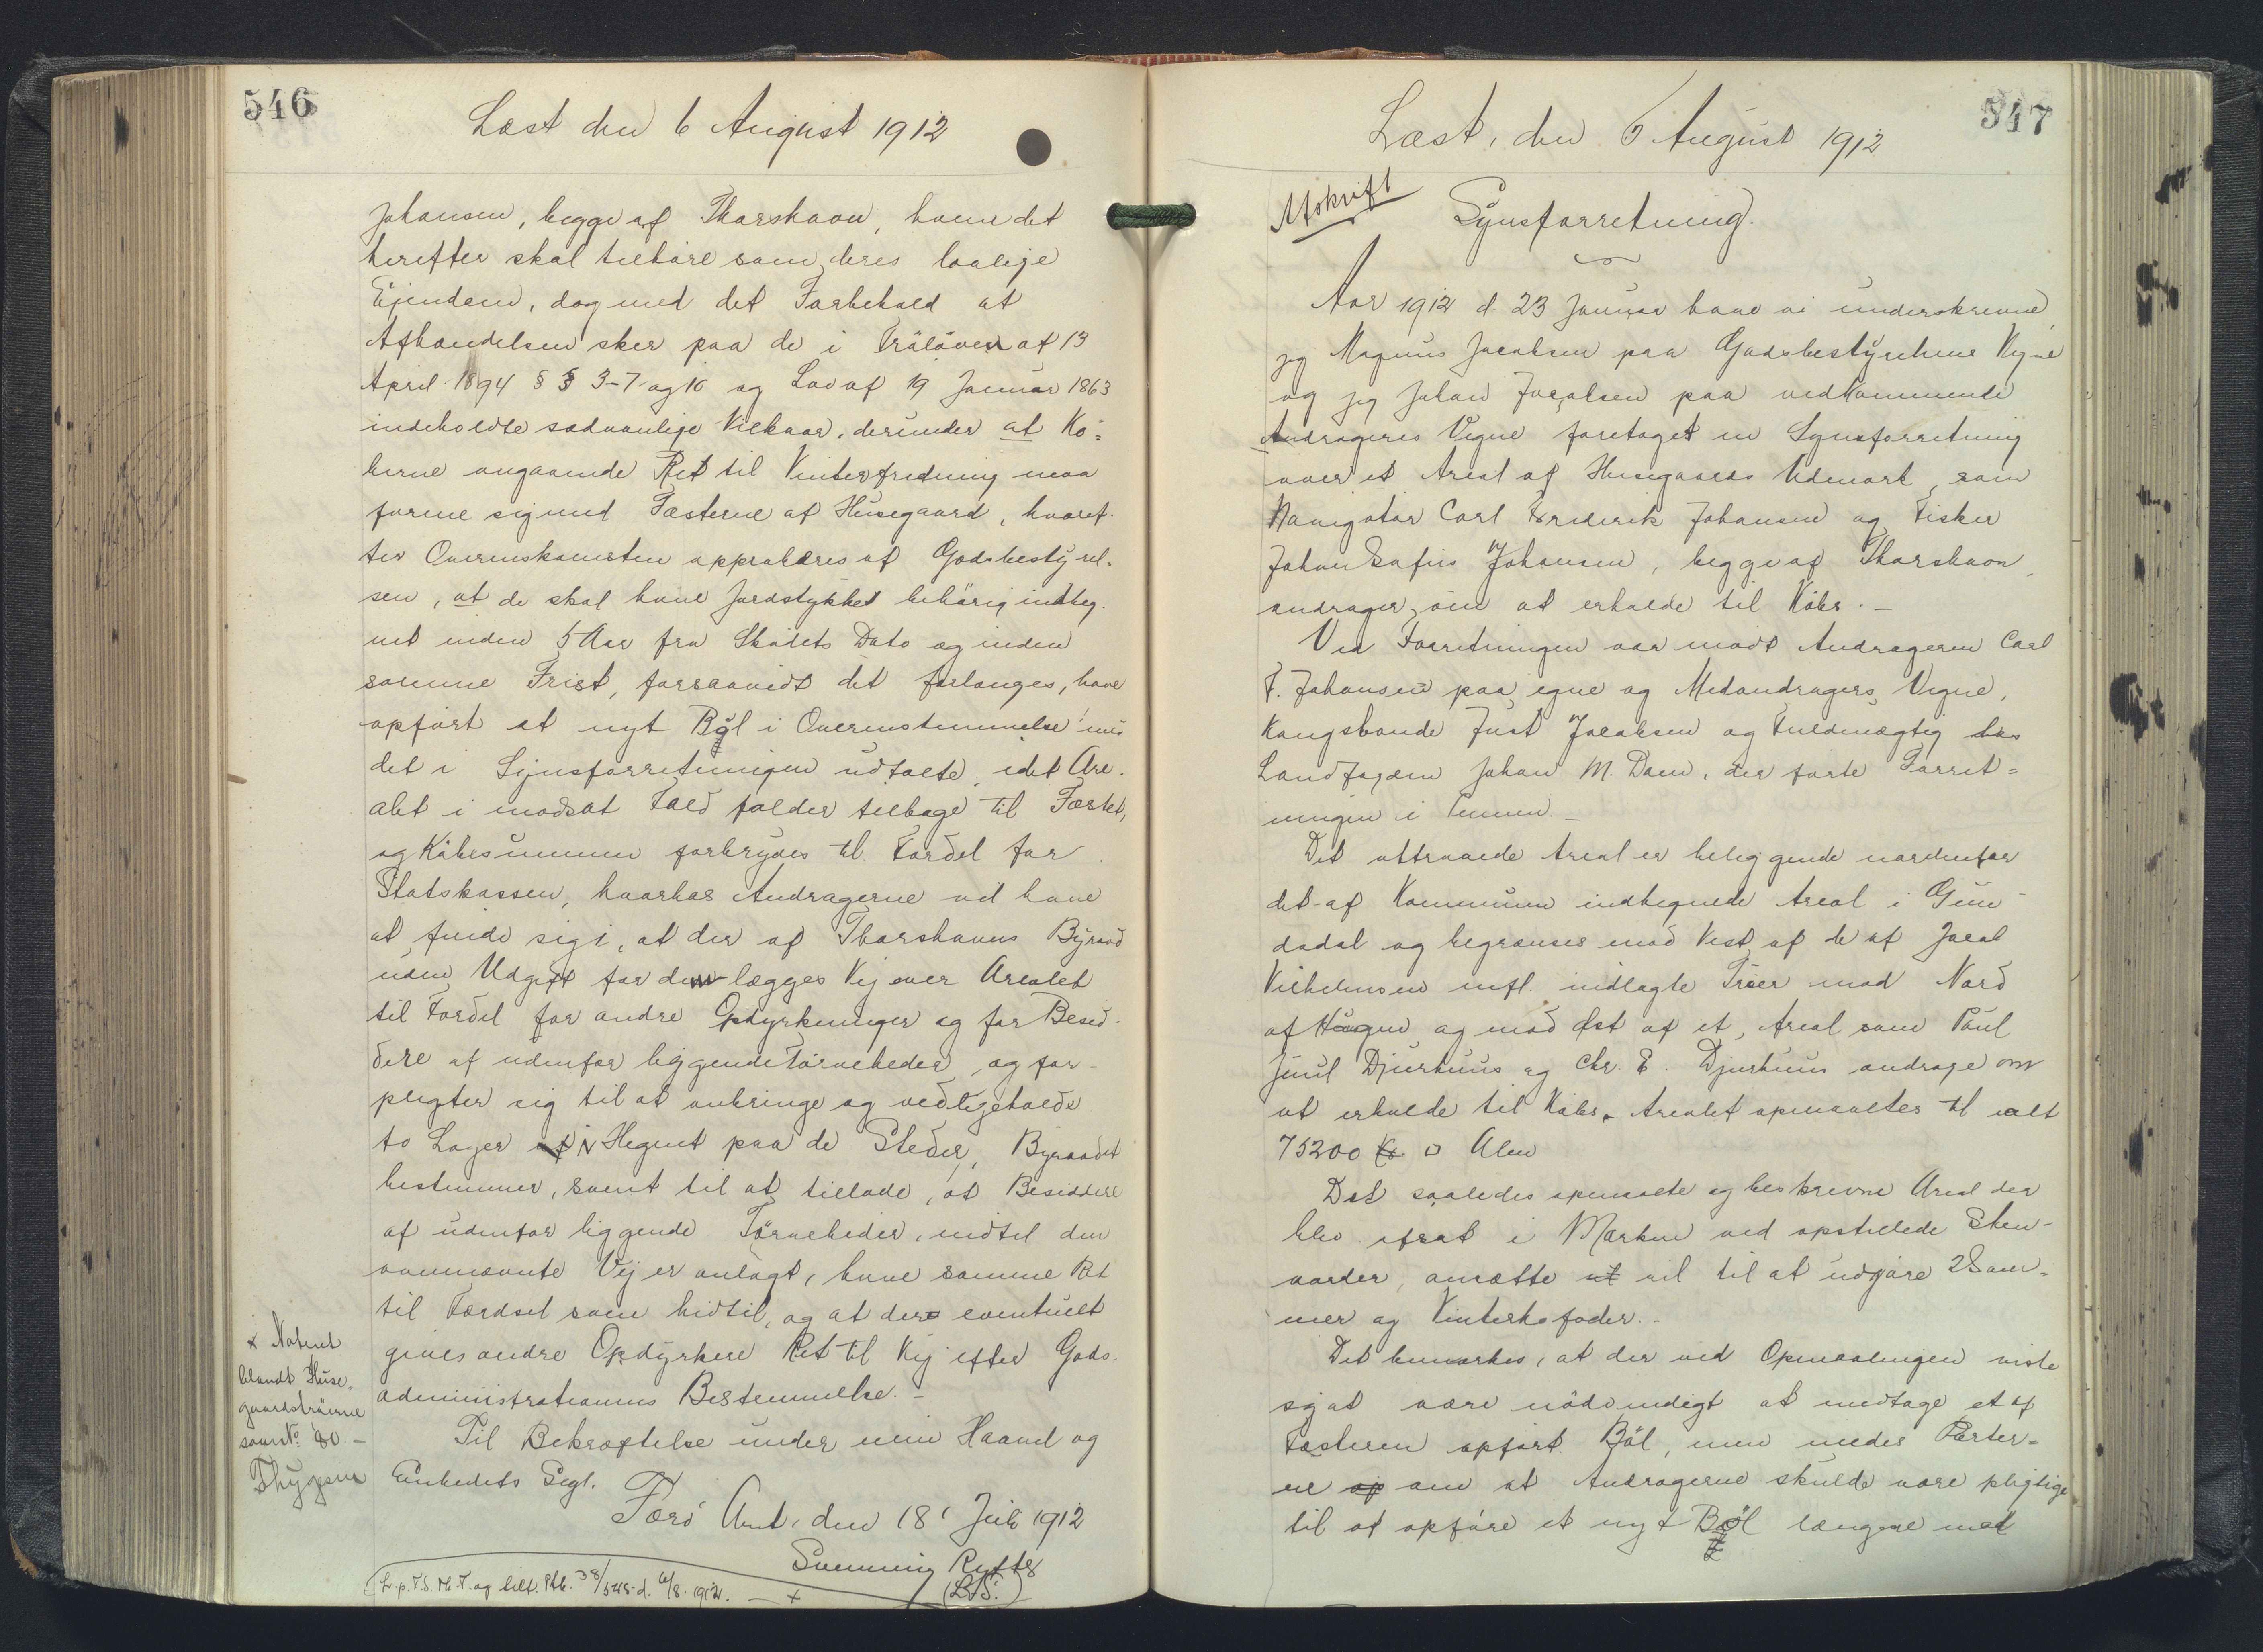 546
Læst den 6 August 1912
Johansen, begge af Thorshavn, hvem det
herefter skal tilhøre som deres lovlige
Ejendom, dog med det Forbehold at
Afhændelsen sker paa de i Trålöven af 13
April 1894 §§ 3-7 og 10 og Lov af 19 Januar 1863
indeholdte sædvanlige Vilkaar, derunder at Kö-
berne angaaende Ret til Vinterfredning maa
forene sig med Fæsterne af Husegaard, hvoref-
ter Overenskomsten approberes af Godsbestyrel-
sen, at de skal have Jordstykket behörig indheg-
net inden 5 Aar fra Skødets Dato og inden
samme Frist, forsaavidt det forlanges, have
opfört et nyt Ból i Overensstemmelse med
det i Synsforretningen udtalte, idet Are-
alet i modsat Fald falder tilbage til Fæstet,
og Købesummen forbrydes til Fordel for
Statskassen, hvorhos Andragerne vil have
at finde sig i, at der af Thorshavns Byraad
uden Udgift for dem lægges Vej over Arealet
til Fordel for andre Opdyrkninger og for Besid-
dere af udenfor liggende Törveheder, og for-
pligter sig til at anbringe og vedligeholde
to Lager i Hegnet paa de Steder, Byraadet
bestemmer, samt til at tillade, at Besiddere
af udenfor liggende Törveheder, indtil den
ovennævnte Vej er anlagt, have samme Ret
til Færdsel som hidtil, og at der eventuelt
gives andre Opdyrkere Ret til Vej efter Gods-
administrationens Bestemmelse.-
Til Bekræftelse under min Haand og
Embedets Segl.
Færö Amt, den 18' Juli 1912
Svenning Rytter
(L.S.)
x Noteret
blandt Huse-
gaardströerne
som No 80 -
Thygesen
L. p. T. S. M. T. og lilt. Ptb. 38/548 d. 6/8. 1912. - x
547
Læst, den 6 August 1912
Afskrift
Synsforretning.
Aar 1912 d. 23 Januar have vi underskrevne,
jeg Magnus Jacobsen paa Godsbestyrelsens Vegne
og jeg Johan Jacobsen paa vedkommende
Andrageres Vegne foretaget en Synsforretning
over et Areal af Husegaards Udmark, som
Navigatör Carl Frederik Johansen og Fisker
Johan Zafus Johansen, begge af Thorshavn
andrager om at erholde til Købs.-
Ved Forretningen var mødt Andrageren Carl
F. Johansen paa egne og Medandragers Vegne,
Kongsbonde Just Jacobsen og Fuldmægtig hos
Landfogden Johan M. Dam, der førte Forret-
ningen i Pennen.-
Det attraaede Areal er beliggende nordenfor
det af Kommunen indhegnede Areal i Gun-
dadal og begrænses mod Vest af de af Jacob
Vilhelmsen mfl. indlagte Tröer mod Nord
af Haugen og mod Øst af et Areal som Poul
Juul Djurhuus og Chr. E. Djurhuus andrage om
at erholde til Købs. Arealet opmaaltes til ialt
75200 □ Alen
Det saaledes opmaalte og beskrevne Areal der
blev afsat i Marken ved opstillede Sten-
varder, ansætte vi til at udgöre 2 Som-
mer og Vinterkofoder.-
Det bemærkes, at der ved Opmaalingen viste
sig at være nödvendigt at medtage et af
Fæsteren opfört Ból, men enedes Parter-
ne om at Andragerne skulde være pligtige
til at opføre et nyt Ból længere mod